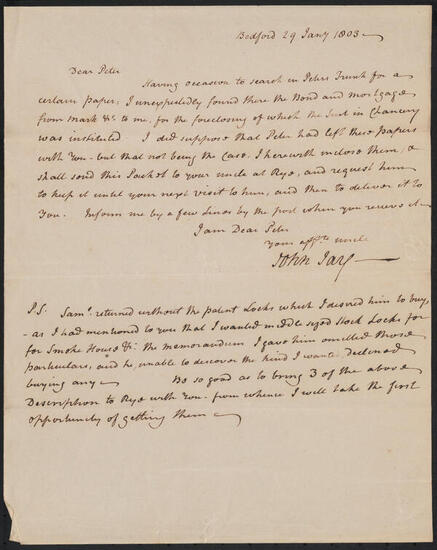 Bedford 29 Jany 1803
Dear Peter
Having occasion to search in Peters Trunk for a
certain paper, I unexpectedly found there the Bond and Mortgage
from Mark &c. to me, for the foreclosing of which the Suit in Chancery
was instituted I did suppose that Peter had left these Papers
with You - but that not being the Case, I herewith inclose them, &
shall send this Packet to your uncle at Rye, and request him
to keep it until your next visit to him, and then to deliver it to
You. Inform me by a few Lines by the post when you receive it -
I am Dear Peter
Your affte. uncle
John Jay
P.S. Saml. returned without the patent Locks which I desired him to buy,
- as I had mentioned to you that I wanted middle sized Stock Locks for
for Smoke House &c: the memorandum I gave him omitted those
particulars, and he, unable to discover the kind I want, declined
buying any - Be so good as to bring 3 of the above
Description to Rye with You - from whence I will take the first
opportunity of getting them -